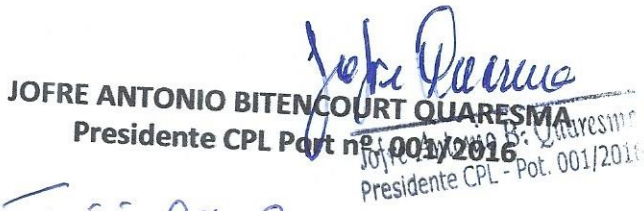 Jofre Quaresma
JOFRE ANTONIO BITENCOURT QUARESMA
Presidente CPL Port nº 001/2016
Jofre Antonio B. Quaresma
Presidente CPL - Pot. 001/2016